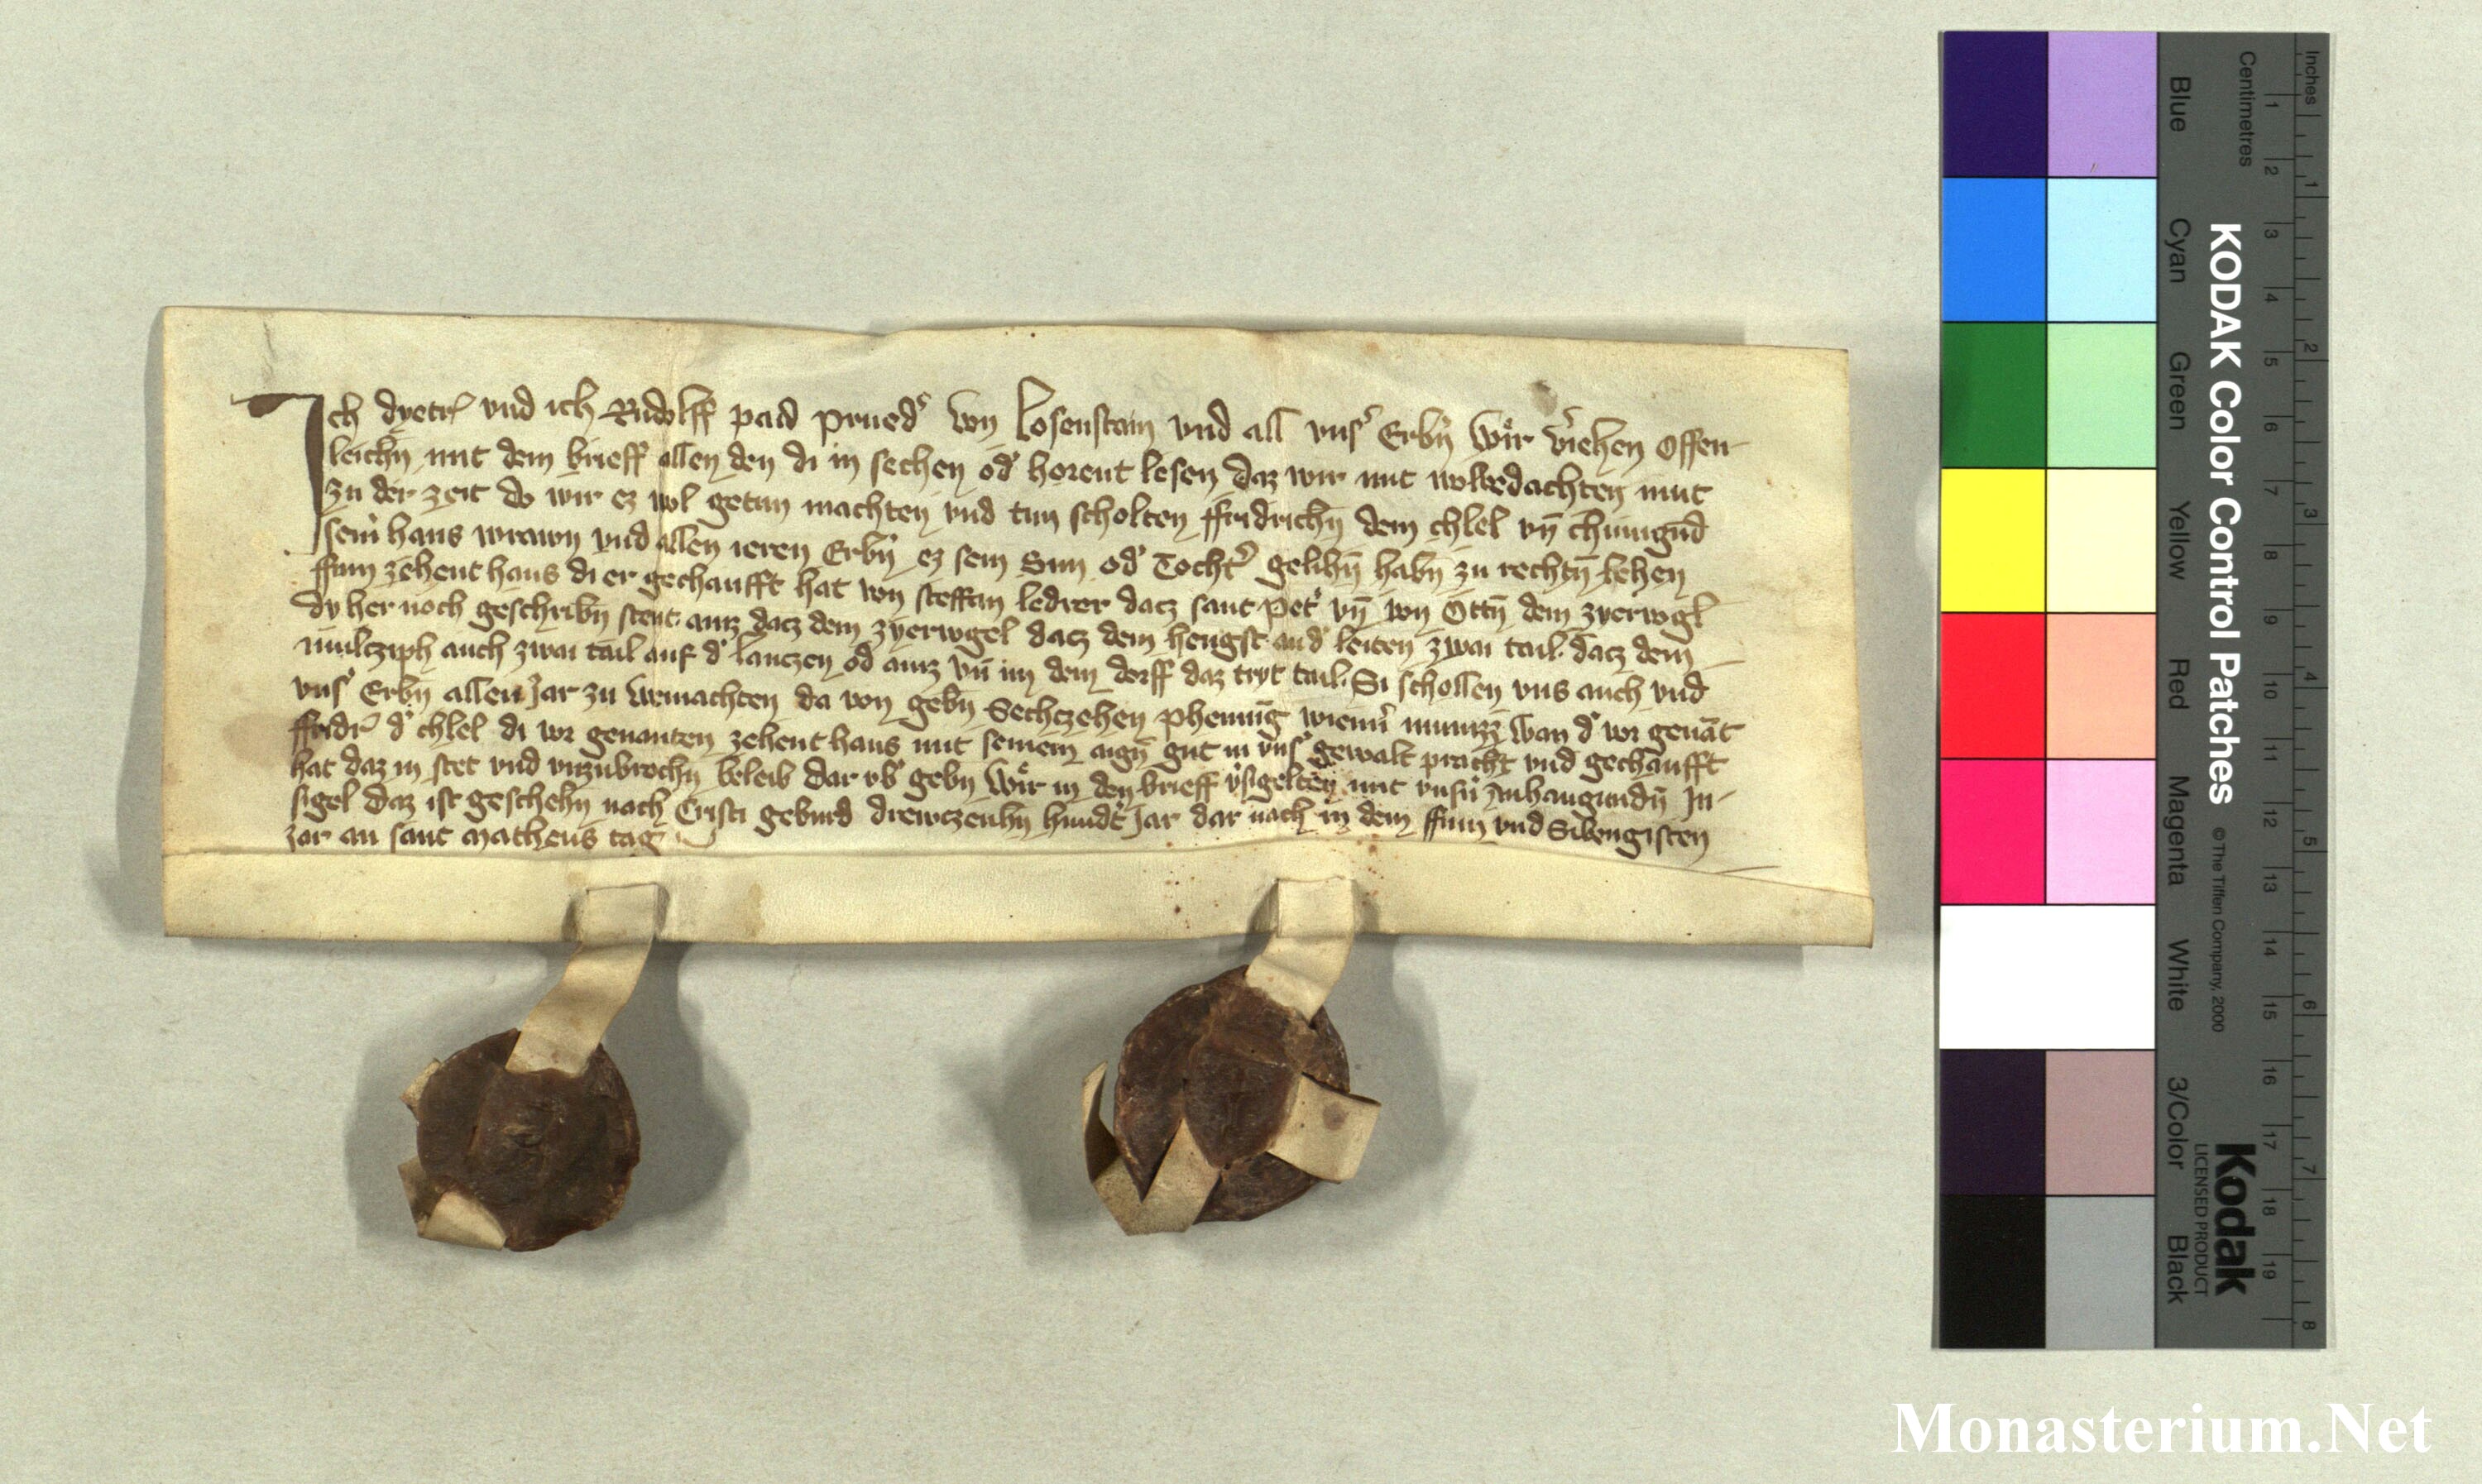 Ich dyetr̄ vnd ich Rudolff paid prued' von Losenstain vnd all vns' Erbn̄ Wir v'iehen Offen-
leichn̄ mit dem brieff allen den di in sechen od' horent lesen daz wir mit wolbedachten mut
zu der zeit do wir ez wol getun machten vnd tun scholten ffridrichn̄ dem chlel vn̄ chunigūd
sein' haus wrawn vnd allen ieren Erbn̄ ez sein Sun od' Tocht' gelihn̄ habn̄ zu rechtn̄ lehen
ffunf zehent haus di er gechaufft hat von steffan ledrer dacz sant pet' vn̄ von Ottn̄ dem zyerwgl
dy her noch geschribn̄ stent ainz dacz dem zyerwgel dacz dem hengst an d' leiten zwai tail dacz dem
mulcziph auch zwai tail auf d' lanczen od ainz vn̄ im dem dorff daz tryt tail. Si schollen vns auch vnd
vns' Erbn̄ allen Jar zu weinachten da von gebn̄ Sechczehen phennīg wienn' munizz wan d' vor genāt
ffridr̄ d' chlel di vor genanten zehent haus mit seinem aign̄ gut in vns' gewalt pracht vnd gechaufft
hat daz in stet vnd vnzubrochn̄ beleib dar vb' gebn̄ Wir in den brieff v'sigelten mit vnsn̄ Anhangundn̄ In-
sigel daz ist geschehn̄ nach Cristi geburd drewczenhn̄ hund't Jar dar nach in dem ffunf vnd Sibengisten
Jar an sant matheus tag
KODAK Color Control Patches
© The Tiffen Company, 2000
Kodak
LICENSED PRODUCT
Blue Cyan Green Yellow Red Magenta White 3/Color Black
Centimetres 1 2 3 4 5 6 7 8 9 10 11 12 13 14 15 16 17 18 19
Inches 1 2 3 4 5 6 7 8
Monasterium.Net